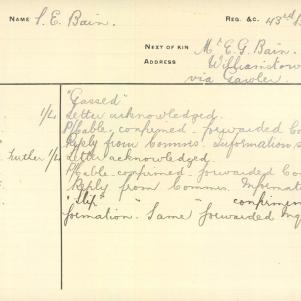 NAME S. E. Bain. REG. &C. 43rd B
NEXT OF KIN Mr E. G. Bain.
ADDRESS Williamstow
via Gawler.
"Gassed"
1/4 Letter acknowledged.
P/Cable, confirmed - forwarded Co
Reply from Commis. Information s
Further 1/4 Letter acknowledged.
P/Cable - confirmed - forwarded Co
Reply from Commis. Informati
"Slip" " confirmen
formation. Same forwarded Mq